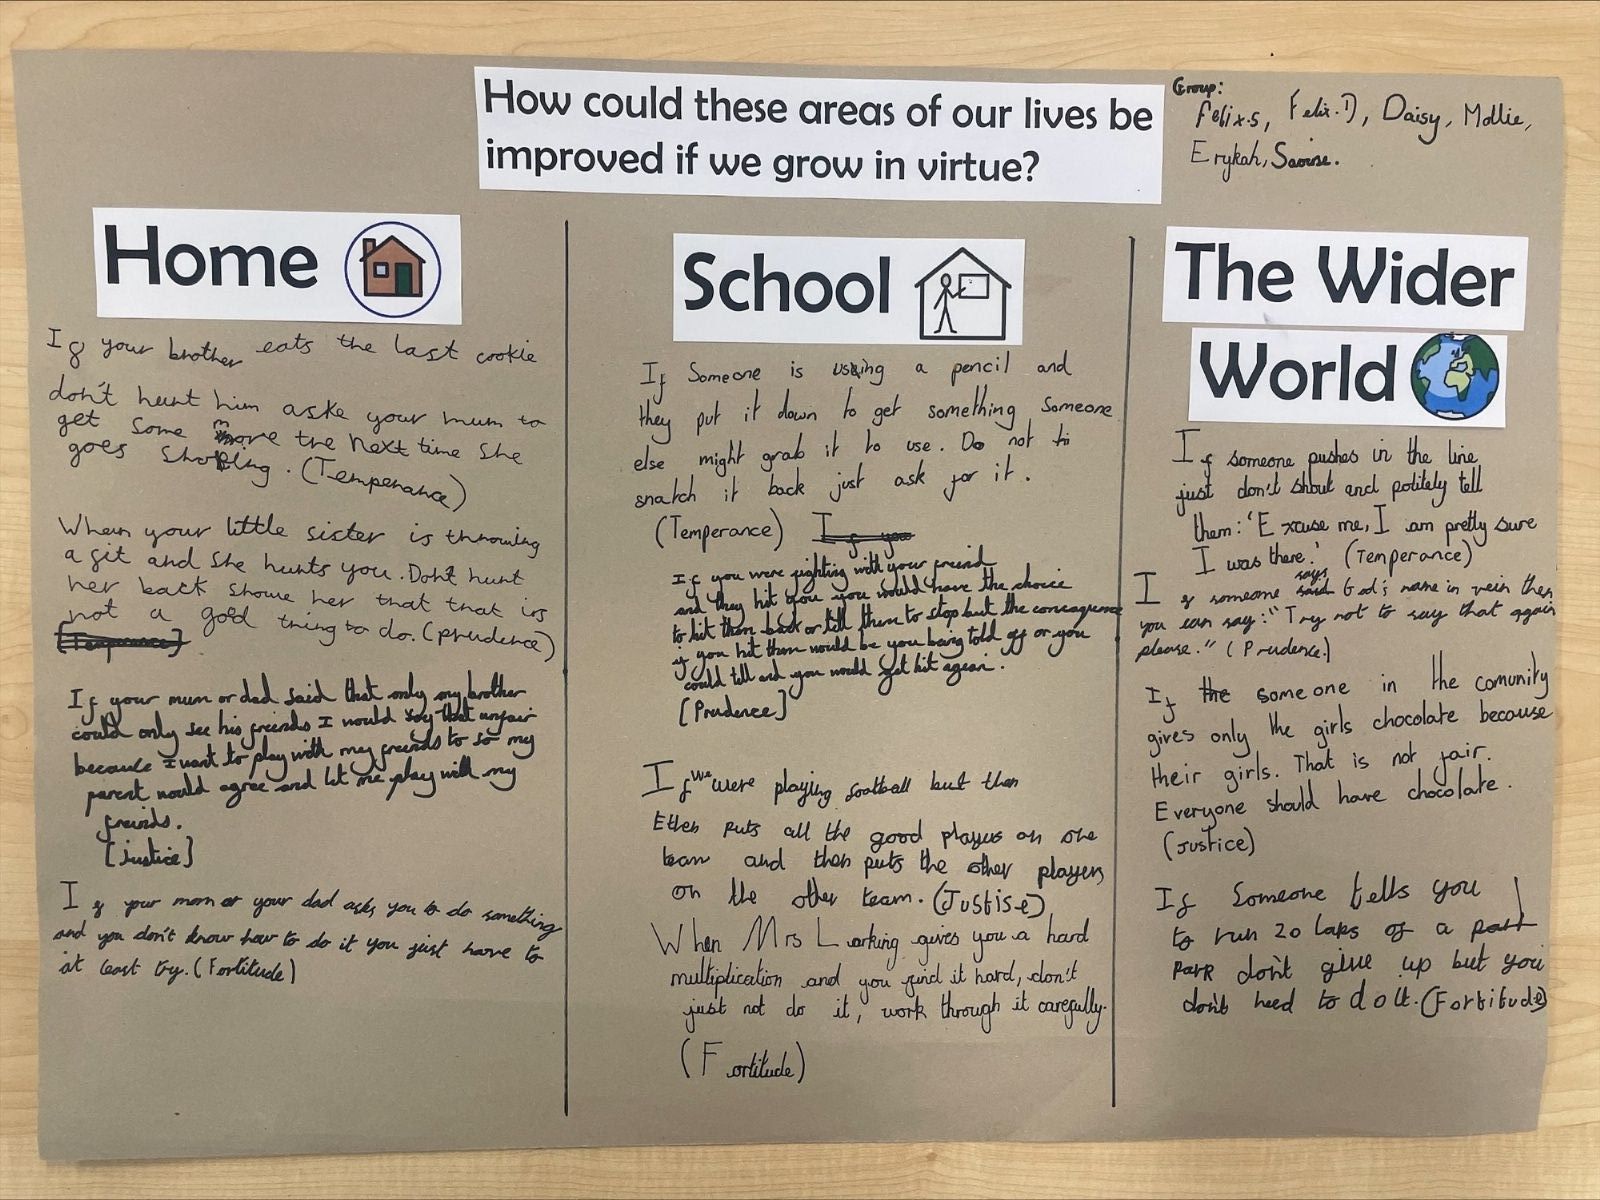 How could these areas of our lives be
improved if we grow in virtue?
Group:
Felix.S, Felix.D, Daisy, Mollie,
Erykah, Saoirse.
Home
If your brother eats the last cookie
don't hunt him aske your mum to
get some more the next time she
goes shopping. (Temperance)
When your little sister is throwing
a fit and she hunts you. Don't hunt
her back showe her that that is
not a good thing to do. (prudence)
[Temperance]
If your mum or dad said that only my brother
could only see his freinds I would say that unfair
because I want to play with my freinds to so my
parent would agree and let me play with my
freinds.
[justice]
If your mom or your dad asks you to do something
and you don't know how to do it you just have to
at least try. (Fortitude)
School
If Someone is using a pencil and
they put it down to get something someone
else might grab it to use. Do not
snatch it back just ask for it.
(Temperance) If you
If you were fighting with your freind
and they hit you you would have the choice
to hit them back or tell them to stop but the consequence
if you hit them would be you being told off or you
could tell and you would get hit again.
[Prudence]
If we were playing football but then
puts all the good players on one
team and then puts the other players
on the other team. (Justise)
When Mrs Larking gives you a hard
multiplication and you find it hard, don't
just not do it, work through it carefully.
(Fortitude)
The Wider
World
If someone pushes in the line
just don't shout and politely tell
them: 'Excuse me, I am pretty sure
I was there.' (Temperance)
If someone said says God's name in vein then
you can say: "Try not to say that again
please." (Prudence.)
If the someone in the comunity
gives only the girls chocolate because
their girls. That is not fair.
Everyone should have chocolate.
(Justice)
If Someone tells you
to run 20 laps of a part
park don't give up but you
don't need to do it. (Fortitude)